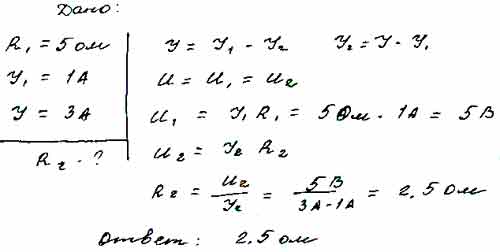 Дано:
R₁ = 5 ом
У₁ = 1А
У = 3А
R₂ - ?
У = У₁ - У₂ У₂ = У - У₁
U = U₁ = U₂
U₁ = У₁ R₁ = 5 Ом · 1А = 5В
U₂ = У₂ R₂
R₂ = U₂/У₂ = 5В/3А-1А = 2,5 ом
ответ: 2,5 ом